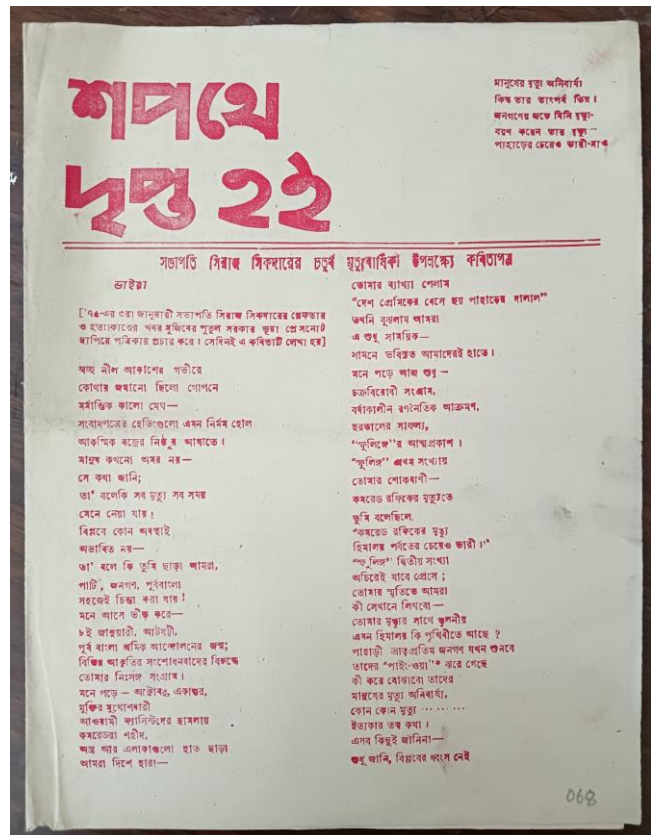 শপথে
দৃপ্ত হই
মানুষের মৃত্যু অনিবার্য।
কিন্তু তার তাৎপর্য ভিন্ন।
জনগণের জন্যে যিনি মৃত্যু-
বরণ করেন তার মৃত্যু ···
পাহাড়ের চেয়েও ভারী-মাও
সভাপতি সিরাজ সিকদারের চতুর্থ মৃত্যুবার্ষিকী উপলক্ষ্যে কবিতাপত্র
ভাইয়া
['৭৫-এর ৩রা জানুয়ারী সভাপতি সিরাজ সিকদারের গ্রেফতার
ও হত্যাকাণ্ডের খবর মুজিবের পুতুল সরকার ভূয়া প্রেসনোট
ছাপিয়ে পত্রিকায় প্রচার করে। সেদিনই এ কবিতাটি লেখা হয়]
স্বচ্ছ নীল আকাশের গভীরে
কোথায় জমানো ছিলো গোপনে
মর্মান্তিক কালো মেঘ—
সংবাদপত্রের হেডিংগুলো এমন নির্মম হোল
আকস্মিক বজ্রের নিষ্ঠুর আঘাতে।
মানুষ কখনো অমর নয়—
সে কথা জানি;
তা' বলেকি সব মৃত্যু সব সময়
মেনে নেয়া যায়!
বিপ্লবে কোন অবস্থাই
অভাবিত নয়—
তা' বলে কি তুমি ছাড়া আমরা,
পার্টি, জনগণ, পূর্ববাংলা
সহজেই চিন্তা করা যায়!
মনে আসে ভীড় করে—
৮ই জানুয়ারী, আটষট্টী,
পূর্ব বাংলা শ্রমিক আন্দোলনের জন্ম;
বিভিন্ন আকৃতির সংশোধনবাদের বিরুদ্ধে
তোমার নিঃসঙ্গ সংগ্রাম।
মনে পড়ে — অক্টোবর, একাত্তর,
মুক্তির মুখোশধারী
আওয়ামী ফ্যাসিস্টদের হামলায়
কমরেডরা শহীদ,
অস্ত্র আর এলাকাগুলো হাত ছাড়া
আমরা দিশে হারা—
তোমার ব্যাখ্যা পেলাম
“দেশ প্রেমিকের বেসে ছয় পাহাড়ের দালাল”
তখনি বুঝলাম আমরা
এ শুধু সাময়িক—
সামনে ভবিষ্যত আমাদেরই হাতে।
মনে পড়ে আজ শুধু —
চক্রবিরোধী সংগ্রাম,
বর্ষাকালীন রণনৈতিক আক্রমণ,
হরতালের সাফল্য,
“স্ফুলিঙ্গে”র আত্মপ্রকাশ।
“স্ফুলিঙ্গ” প্রথম সংখ্যায়
তোমার শোকবাণী—
কমরেড রফিকের মৃত্যুতে
তুমি বলেছিলে,
“কমরেড রফিকের মৃত্যু
হিমালয় পর্বতের চেয়েও ভারী।”
“স্ফুলিঙ্গ” দ্বিতীয় সংখ্যা
অচিরেই যাবে প্রেসে;
তোমার স্মৃতিতে আমরা
কী সেখানে লিখবো—
তোমার মৃত্যুর সাথে তুলনীয়
এমন হিমালয় কি পৃথিবীতে আছে?
পাহাড়ী ভ্রাতৃপ্রতিম জনগণ যখন শুনবে
তাদের “পাইং-ওয়া”* ঝরে গেছে
কী করে বোঝাবো তাদের
মানুষের মৃত্যু অনিবার্য্য,
কোন কোন মৃত্যু ··· ··· ···
ইত্যকার তত্ব কথা।
এসব কিছুই জানিনা—
শুধু জানি, বিপ্লবের ধ্বংস নেই
068